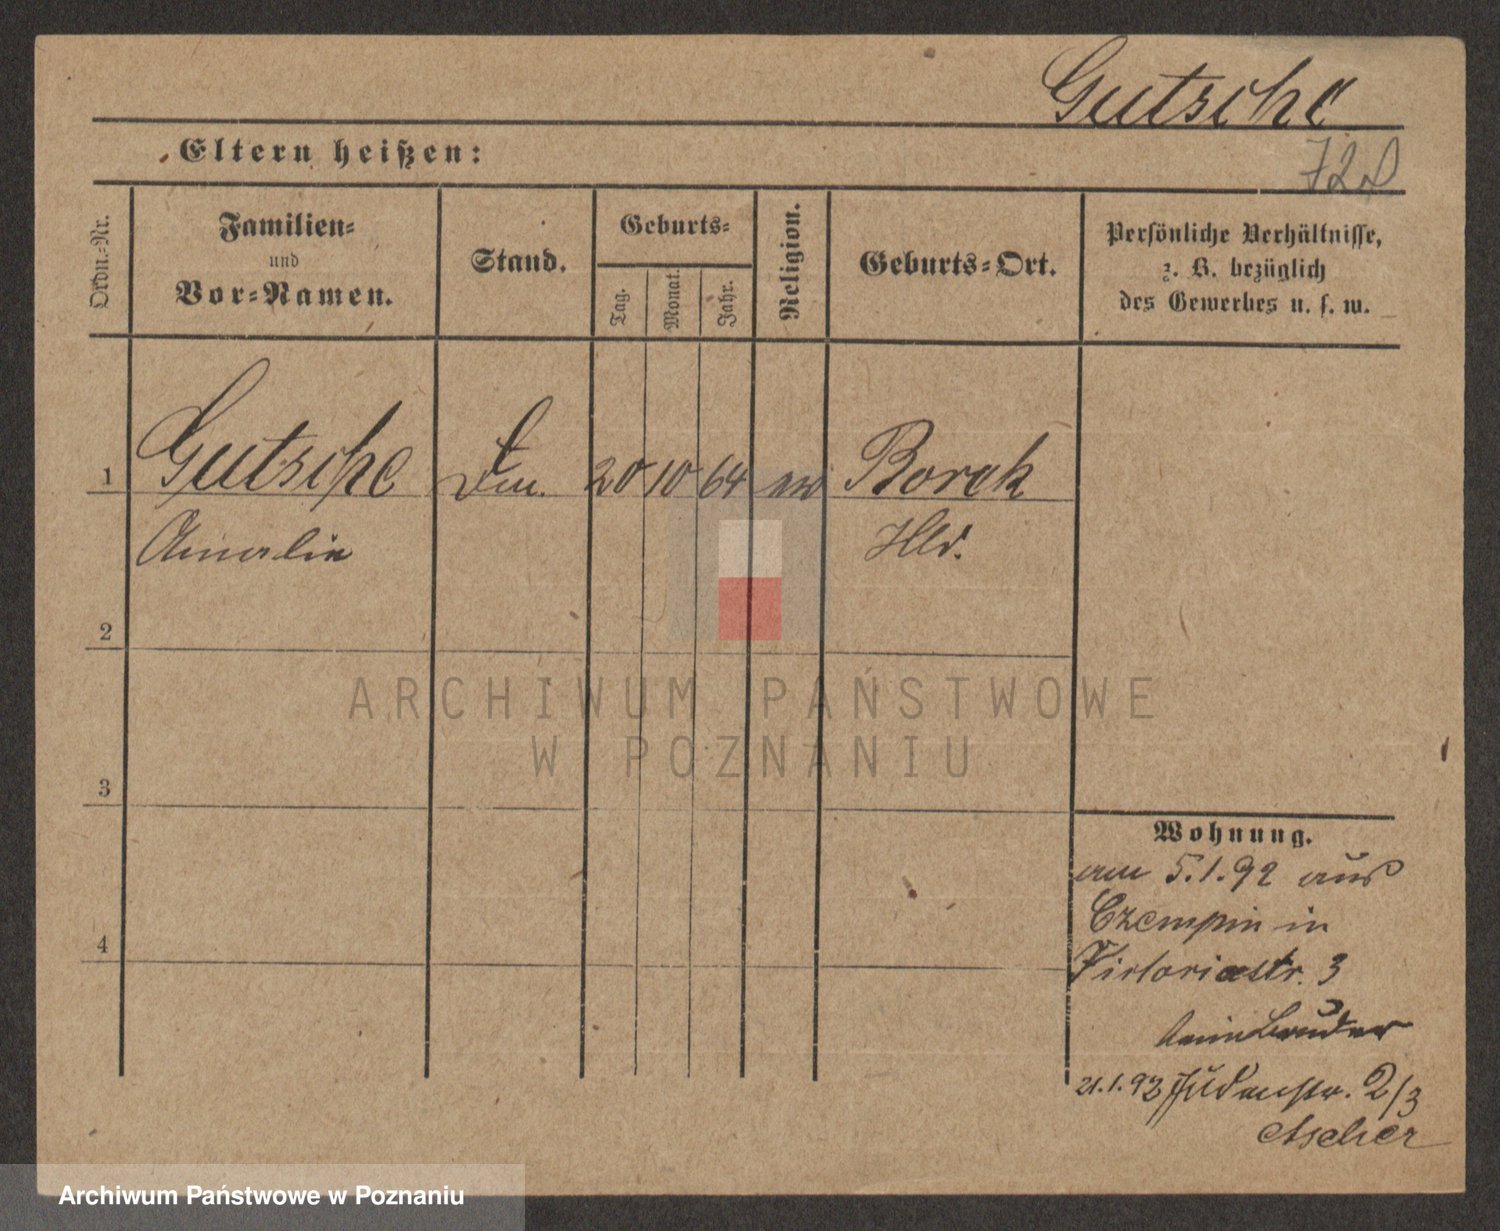 Gutsche
Eltern heißen:
Ordn.-Nr.
Familien-
und
Vor-Namen.
Stand.
Geburts-
Tag.
Monat.
Jahr.
Religion.
Geburts-Ort.
Persönliche Verhältnisse,
z. B. bezüglich
des Gewerbes u. s. w.
1 Gutsche 20 10 64 Borek
Amalie
2
3
4
ARCHIWUM PAŃSTWOWE
W POZNANIU
Wohnung.
am 5.1.92 aus
Czempin in
Victoriastr. 3
beim Bruder
21.1.92 Judenstr. 2/3
Ascher
Archiwum Państwowe w Poznaniu